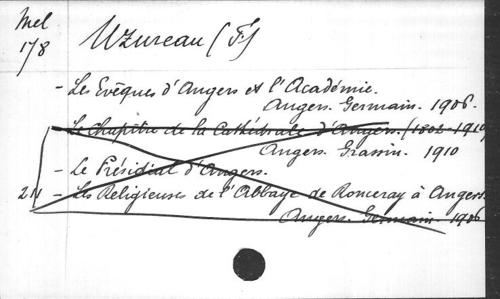 Mel
178
Uzureau (F)
- Les Evêques d'Angers et l'Académie.
Angers. Germain. 1906.
- Le Chapitre de la Cathédrale d'Angers. (1802-1910
Angers. Grassin. 1910
- Le Présidial d'Angers.
- Les Religieuses de l'Abbaye de Ronceray à Angers.
Angers. Germain. 1906